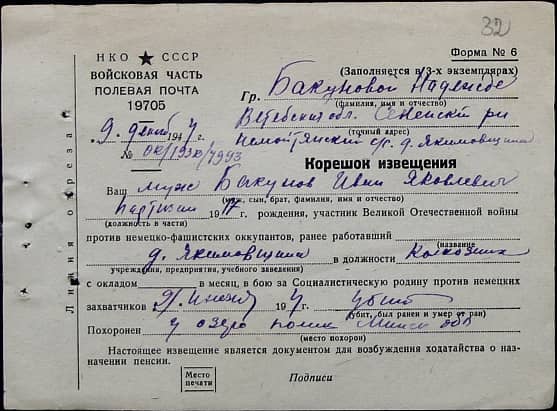 32
НКО ★ СССР
ВОЙСКОВАЯ ЧАСТЬ
ПОЛЕВАЯ ПОЧТА
19705
9. декаб 1944 г.
№
Форма № 6
(Заполняется в 3-х экземплярах)
Гр. Бакуновой Надежде
(фамилия, имя и отчество)
Витебская обл. Сенненский р-н
(точный адрес)
с/с. д. Якимовщина
Корешок извещения
Ваш муж Бакунов Иван Яковлевич
(муж, сын, брат, фамилия, имя и отчество)
партизан 19 рождения, участник Великой Отечественной войны
(должность в части)
против немецко-фашистских оккупантов, ранее работавший
(название
д. Якимовщина в должности колхозник
учреждения, предприятия, учебного заведения)
с окладом в месяц, в бою за Социалистическую родину против немецких
захватчиков 194 г. убит
(убит, был ранен и умер от ран)
Похоронен у озеро Минск обл
(место похорон)
Настоящее извещение является документом для возбуждения ходатайства о на-
значении пенсии.
Место
печати
Подписи
Линия отреза